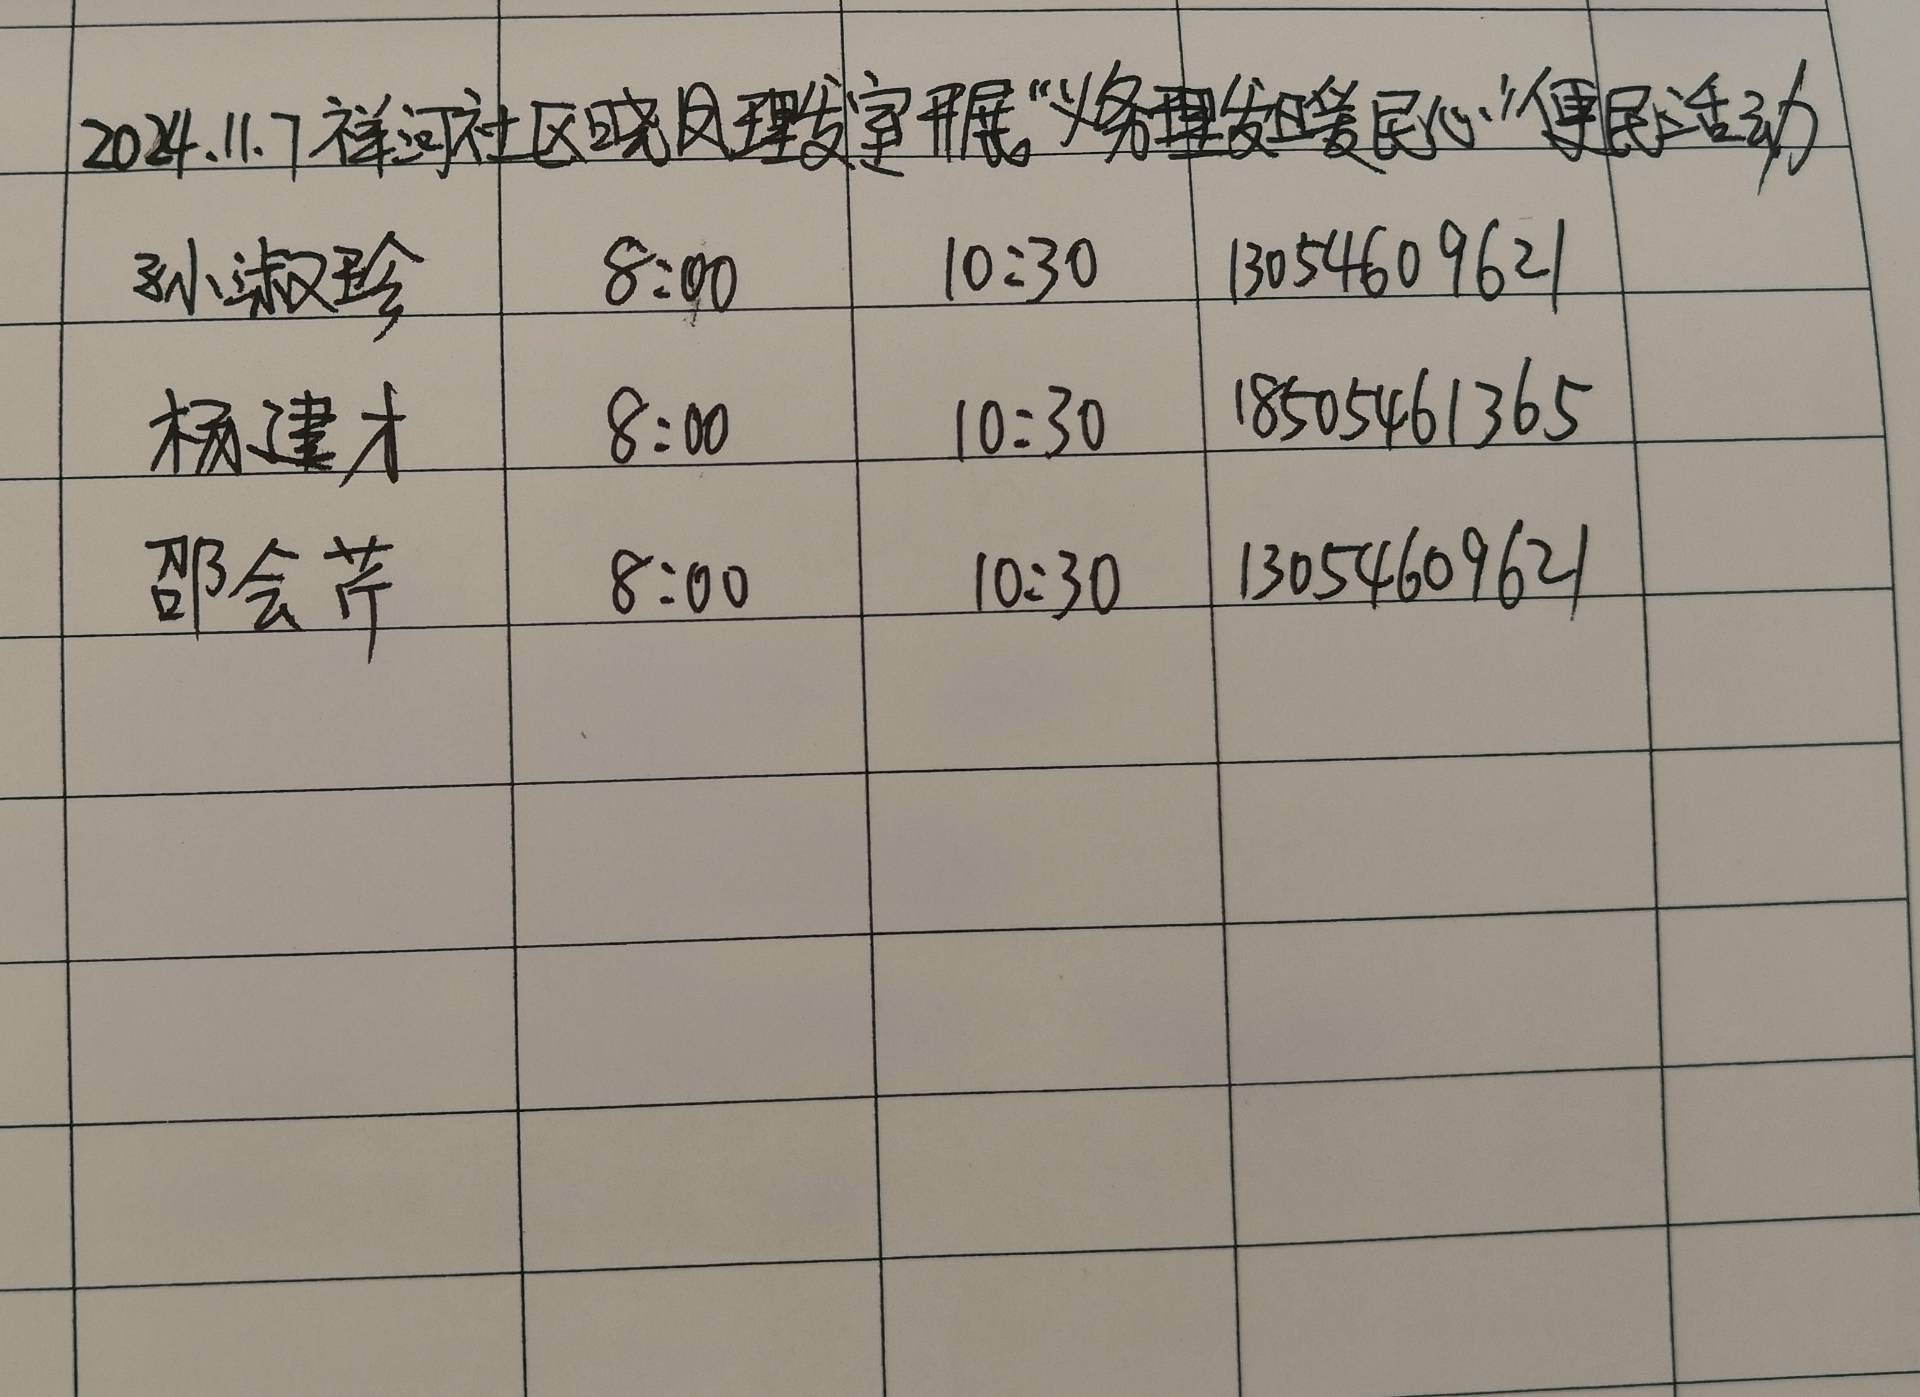 2024.11.7祥河社区晓风理发室开展“义务理发暖民心”便民活动
孙淑珍 8:00 10:30 13054609621
杨建才 8:00 10:30 18505461365
邵会芹 8:00 10:30 13054609621